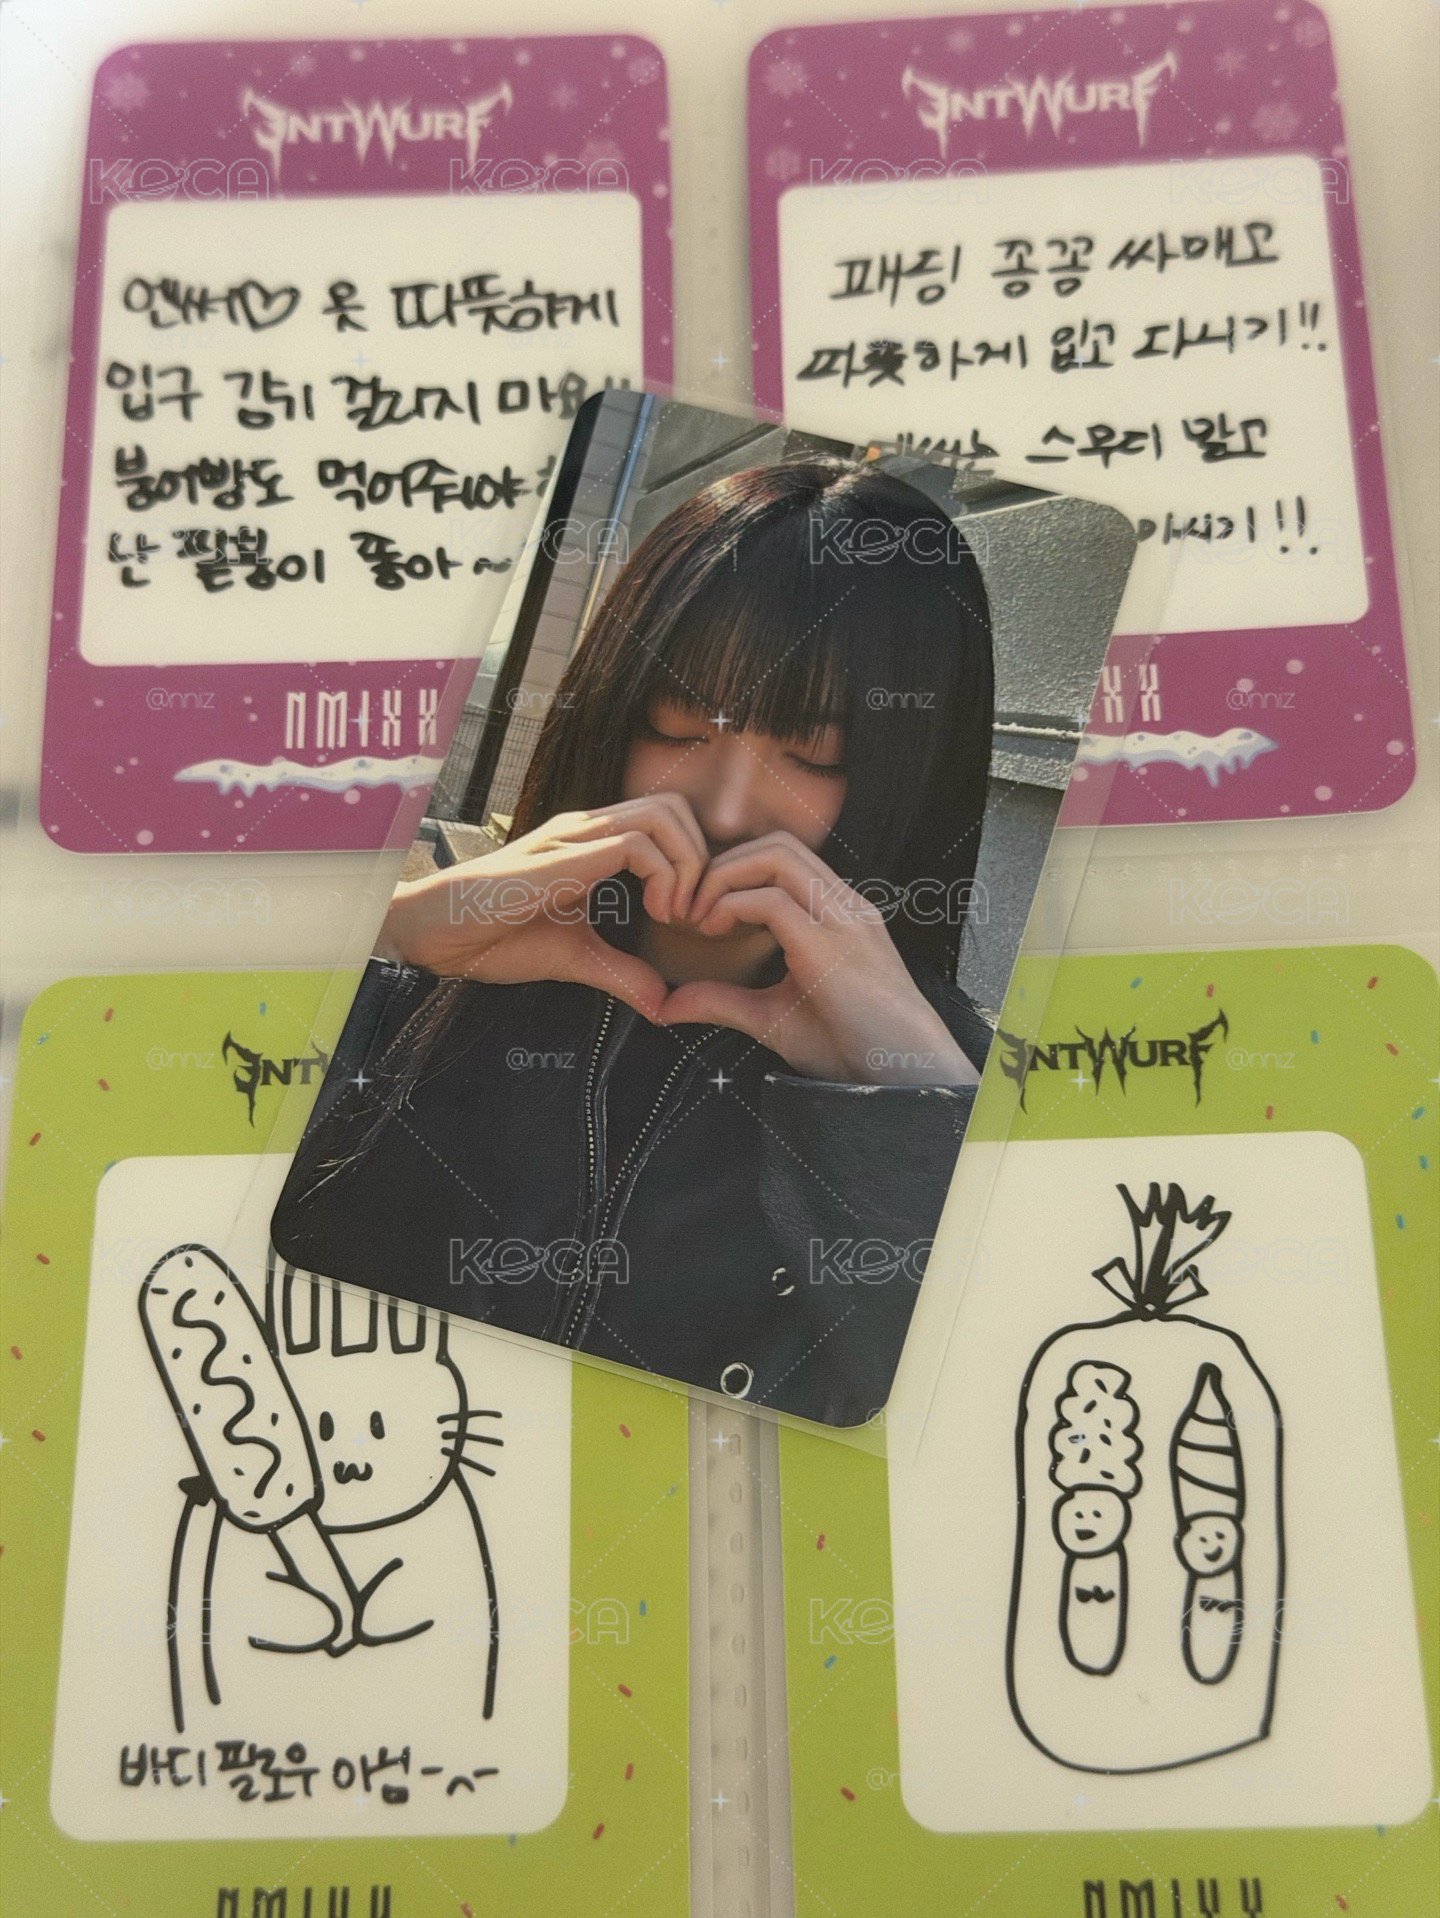 ENTWURF
엔써♡ 옷 따뜻하게
입구 감귀 걸리지 마요!!
붕어빵도 먹어줘야
난 팥붕이 좋아~
NMIXX
ENTWURF
패딩 꽁꽁 싸매고
따뜻하게 입고 다시기!!
스무디 말고
아시기!!
XX
ENT
바디필로우 아님-^-
NMIXX
ENTWURF
NMIXX
KOCA
@nniz